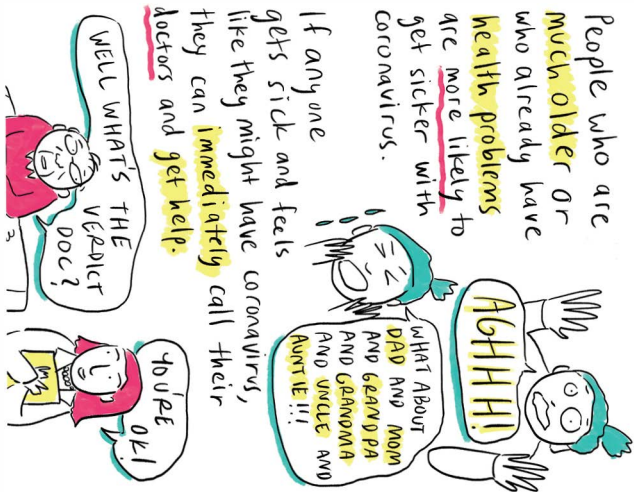 People who are
much older or
who already have
health problems
are more likely to
get sicker with
coronavirus.
AGHHHH!
WHAT ABOUT
DAD AND MOM
AND GRANDPA
AND GRANDMA
AND UNCLE AND
AUNTIE!!!
If anyone
gets sick and feels
like they might have coronavirus,
they can immediately call their
doctors and get help.
WELL WHAT'S THE
VERDICT
DOC?
YOU'RE
OK!